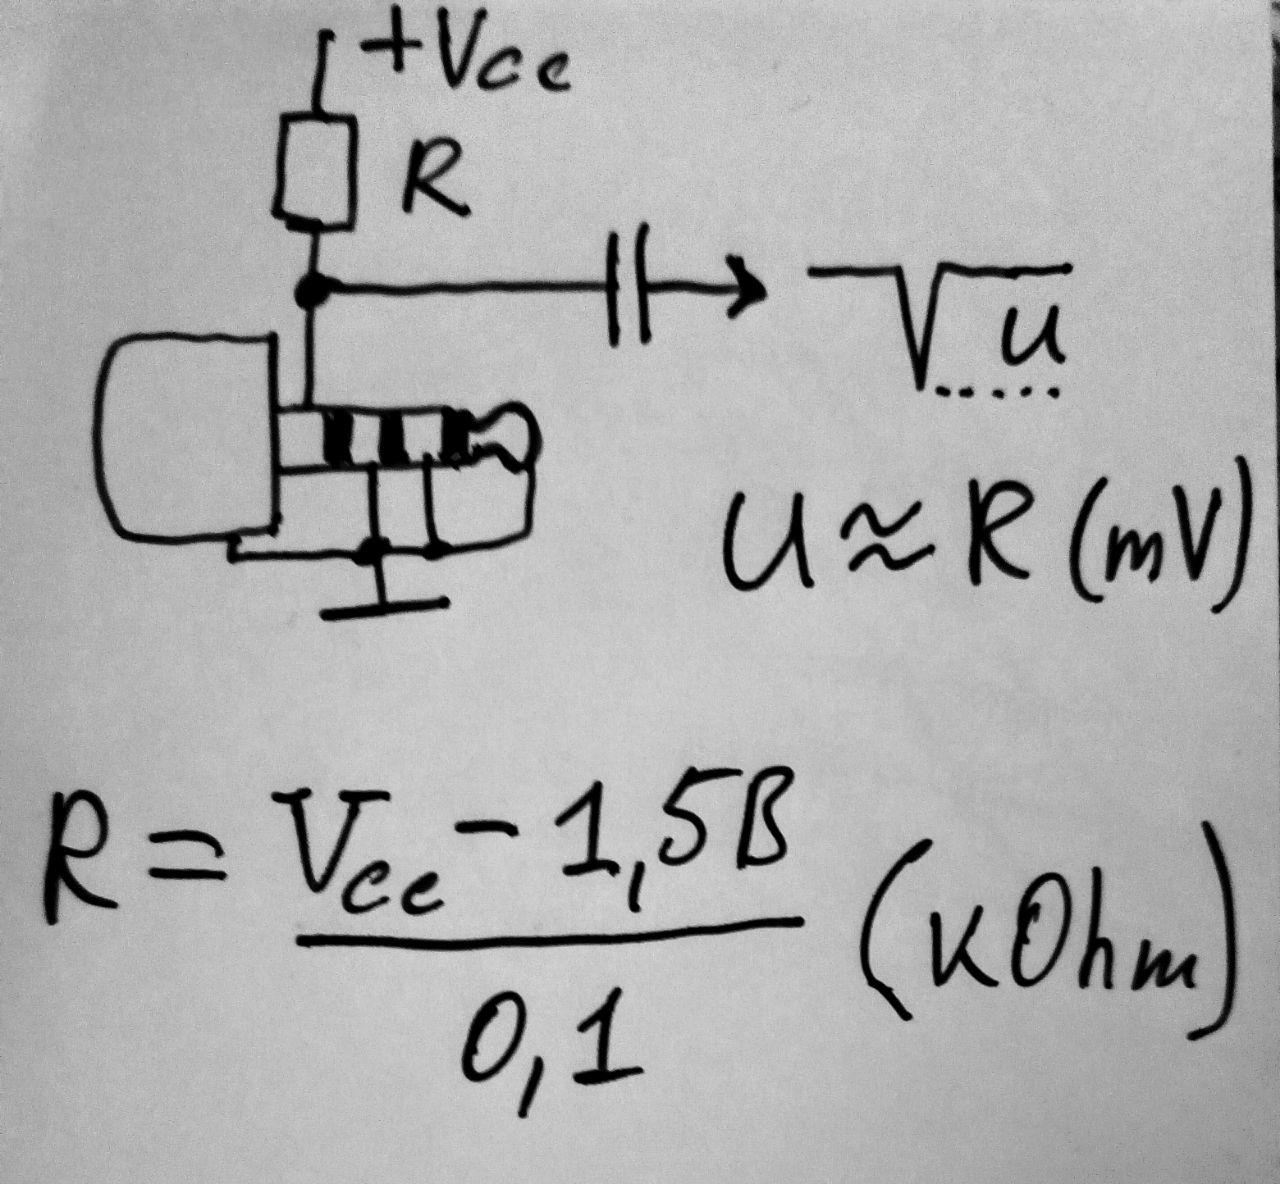 +Vcc
R
U
U ≈ R (mV)
R = Vcc - 1,5В / 0,1 (kOhm)